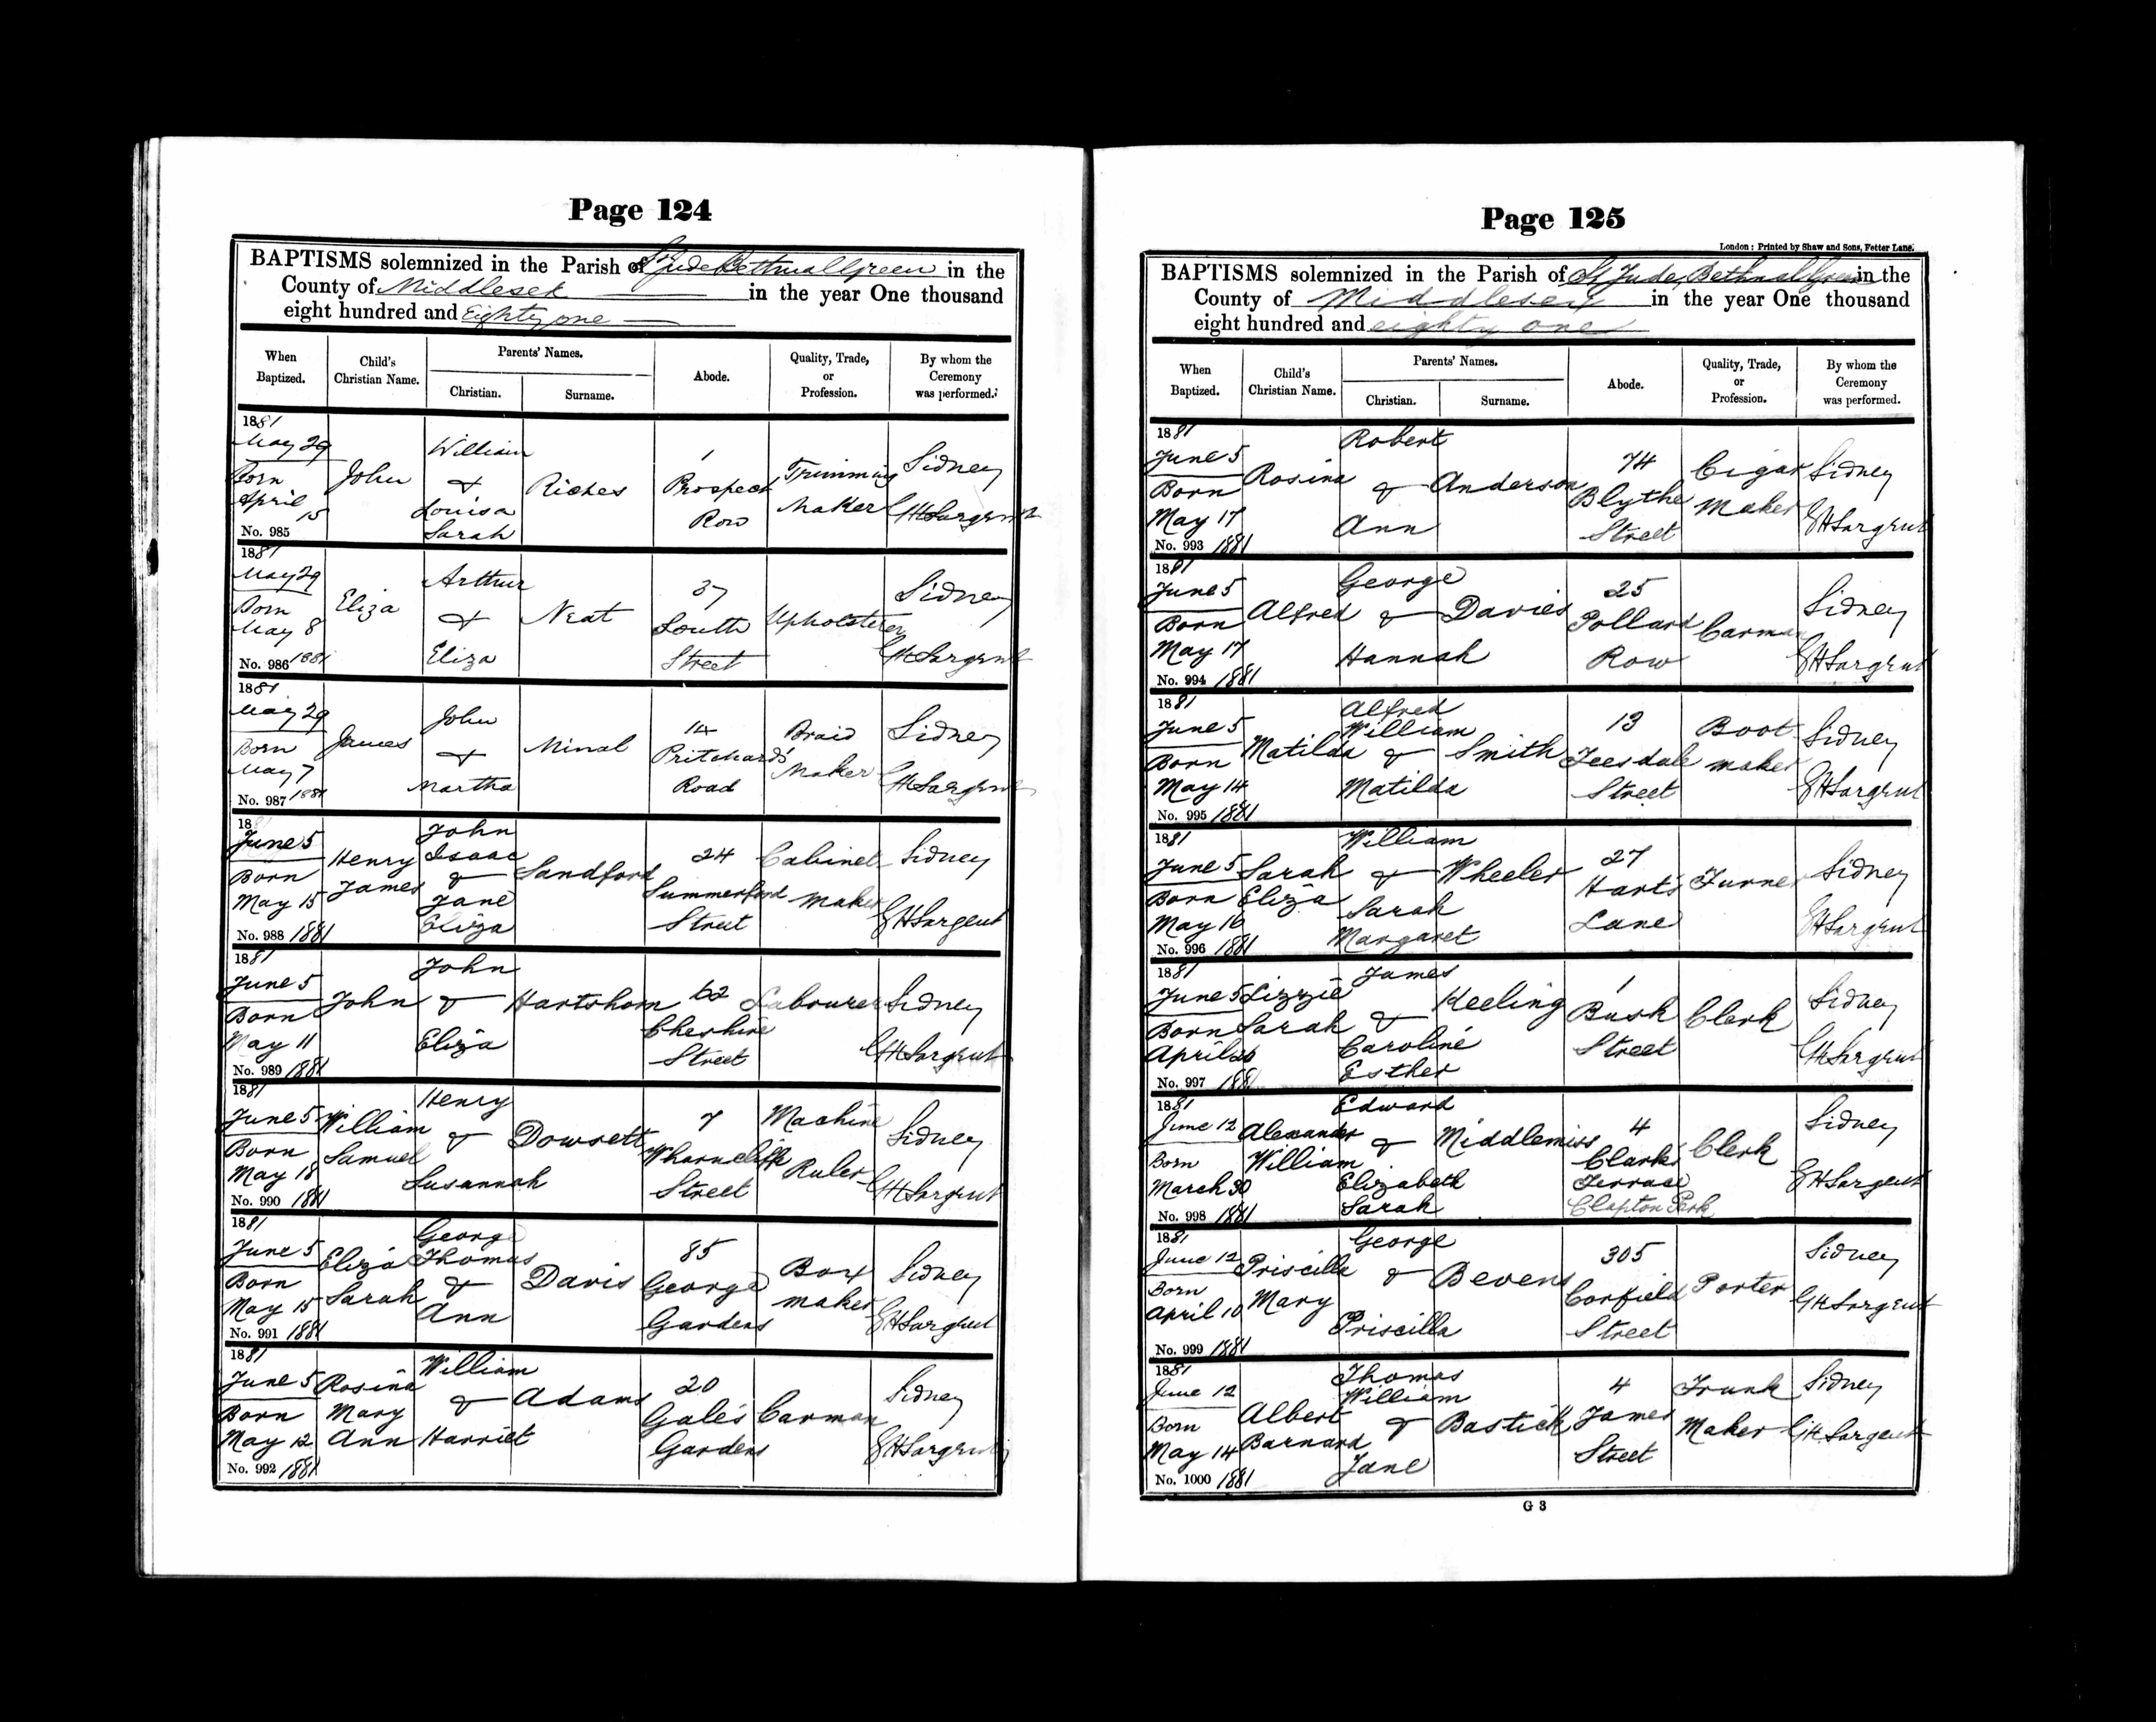 Page 124
BAPTISMS solemnized in the Parish of St Jude Bethnal Green in the
County of Middlesex in the year One thousand
eight hundred and Eighty one
When Baptized.
Child's Christian Name.
Parents' Names.
Christian.
Surname.
Abode.
Quality, Trade, or Profession.
By whom the Ceremony was performed.
1881 May 29 Born April 15 No. 985
John
William & Louisa Sarah
Riches
1 Prospect Row
Trimming Maker
Sidney GHSargent
1881 May 29 Born May 8 No. 986 1881
Eliza
Arthur & Eliza
Neat
37 South Street
Upholsterer
Sidney GHSargent
1881 May 29 Born May 7 No. 987 1881
James
John & Martha
Minal
14 Pritchard's Road
Braid Maker
Sidney GHSargent
1881 June 5 Born May 15 No. 988 1881
Henry James
John Isaac & Jane Eliza
Sandford
24 Summerford Street
Cabinet maker
Sidney GHSargent
1881 June 5 Born May 11 No. 989 1881
John
John & Eliza
Hartshorn
62 Cheshire Street
Labourer
Sidney GHSargent
1881 June 5 Born May 18 No. 990 1881
William Samuel
Henry & Susannah
Dowsett
7 Wharncliffe Street
Machine Ruler
Sidney GHSargent
1881 June 5 Born May 15 No. 991 1881
Eliza Sarah
George Thomas & Ann
Davis
85 George Gardens
Box maker
Sidney GHSargent
1881 June 5 Born May 12 No. 992 1881
Rosina Mary Ann
William & Harriet
Adams
20 Gale's Gardens
Carman
Sidney GHSargent
Page 125
London: Printed by Shaw and Sons, Fetter Lane.
BAPTISMS solemnized in the Parish of St Jude, Bethnal Green in the
County of Middlesex in the year One thousand
eight hundred and eighty one
When Baptized.
Child's Christian Name.
Parents' Names.
Christian.
Surname.
Abode.
Quality, Trade, or Profession.
By whom the Ceremony was performed.
1881 June 5 Born May 17 No. 993 1881
Rosina
Robert & Ann
Anderson
74 Blythe Street
Cigar Maker
Sidney GHSargent
1881 June 5 Born May 17 No. 994 1881
Alfred
George & Hannah
Davies
25 Pollard Row
Carman
Sidney GHSargent
1881 June 5 Born May 14 No. 995 1881
Matilda
Alfred William & Matilda
Smith
13 Teesdale Street
Boot maker
Sidney GHSargent
1881 June 5 Born May 16 No. 996 1881
Sarah Eliza
William & Sarah Margaret
Wheeler
27 Hart's Lane
Turner
Sidney GHSargent
1881 June 5 Born April 26 No. 997 1881
Lizzie Sarah
James & Caroline Esther
Keeling
1 Busk Street
Clerk
Sidney GHSargent
1881 June 12 Born March 30 No. 998 1881
Alexander William
Edward & Elizabeth Sarah
Middlemiss
4 Clarks Terrace Clapton Park
Clerk
Sidney GHSargent
1881 June 12 Born April 10 No. 999 1881
Priscilla Mary
George & Priscilla
Bevens
305 Corfield Street
Porter
Sidney GHSargent
1881 June 12 Born May 14 No. 1000 1881
Albert Barnard
Thomas William & Jane
Bastick
4 James Street
Trunk Maker
Sidney GHSargent
G 3